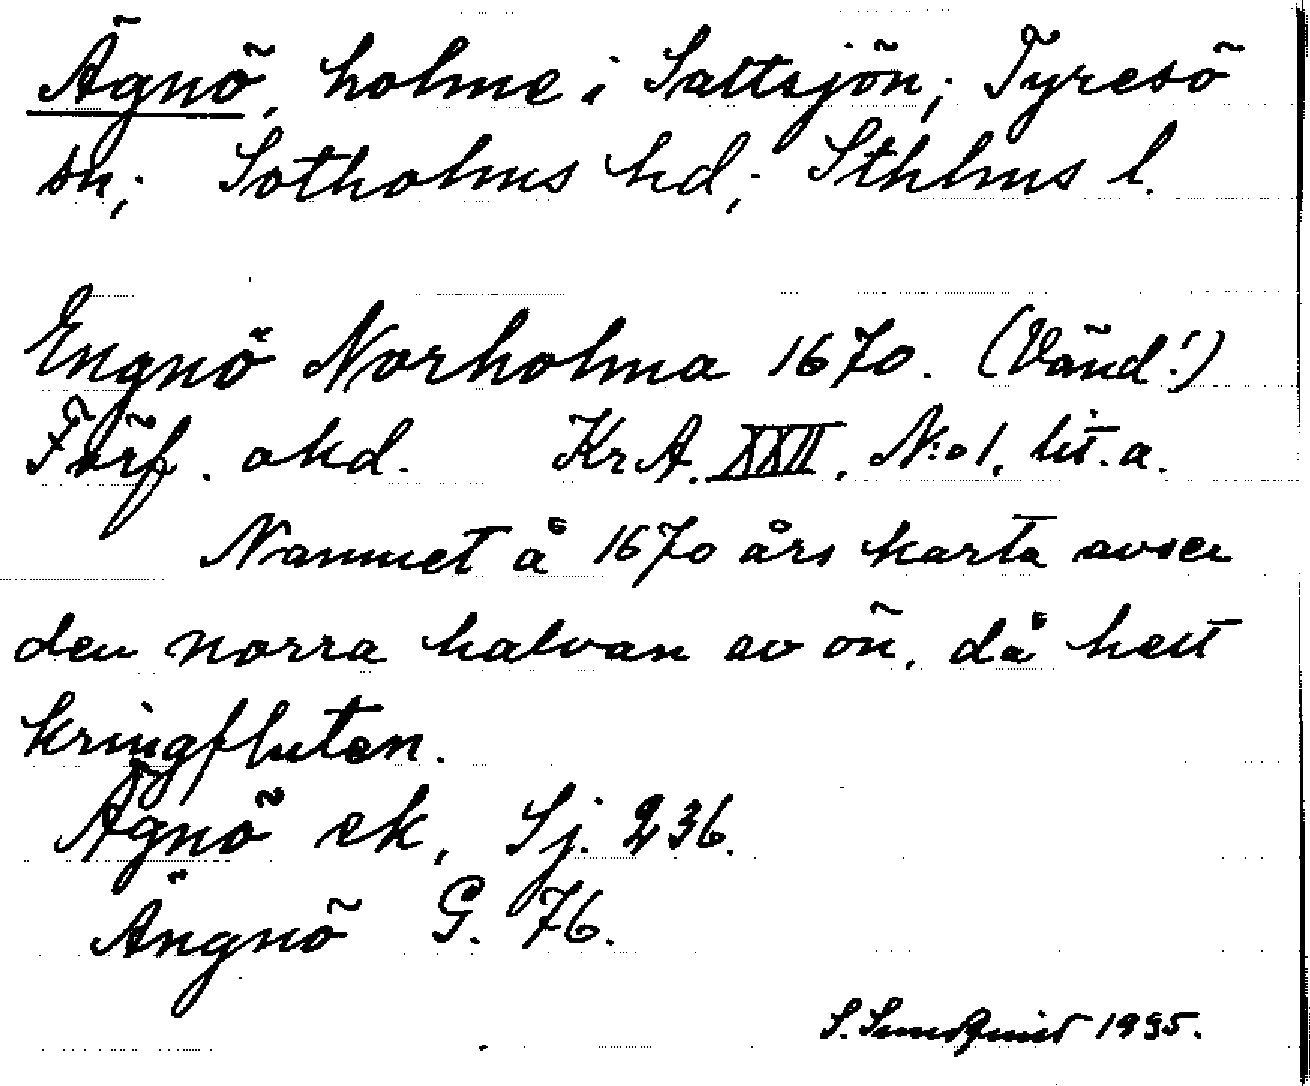 Ägnö, holme i Saltsjön; Tyresö
sn; Sotholms hd; Sthlms l.
Engnö Norholma 1670. (Vänd!)
Förf. okd. KrA. XXII, N:o 1, lit. a.
Namnet å 1670 års karta avser
den norra halvan av ön, då helt
kringfluten.
Ägnö ek, Sj. 236.
Ängnö G. 76.
S. Sundquist 1935.